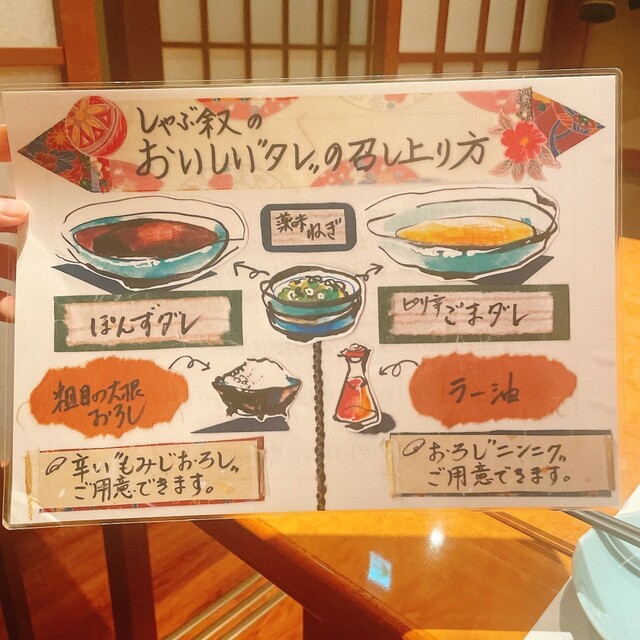 しゃぶ叙の
おいしい"タレ"の召し上り方
薬味
ねぎ
ぽんずダレ
ピリ辛ごまダレ
粗目の大根
おろし
ラー油
辛い"もみじおろし"
ご用意できます。
おろし"ニンニク"
ご用意できます。